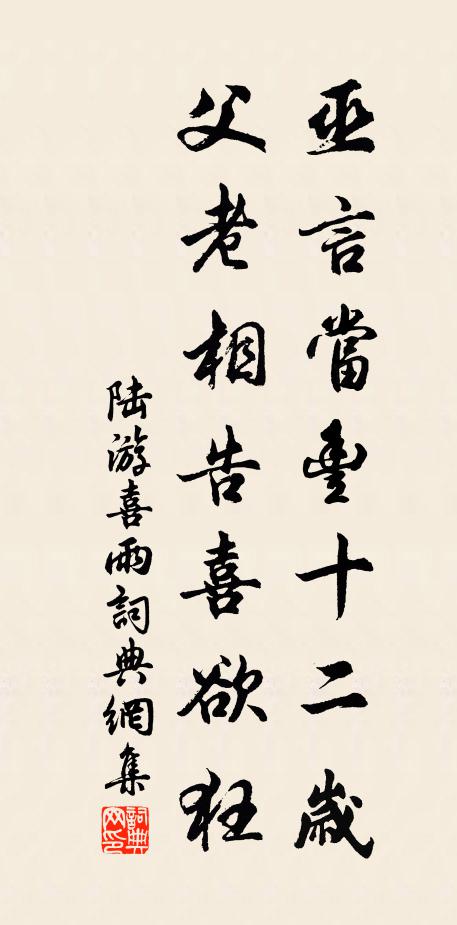 巫言當豐十二歲
父老相告喜欲狂
陆游喜雨詞典網集
詞典网印